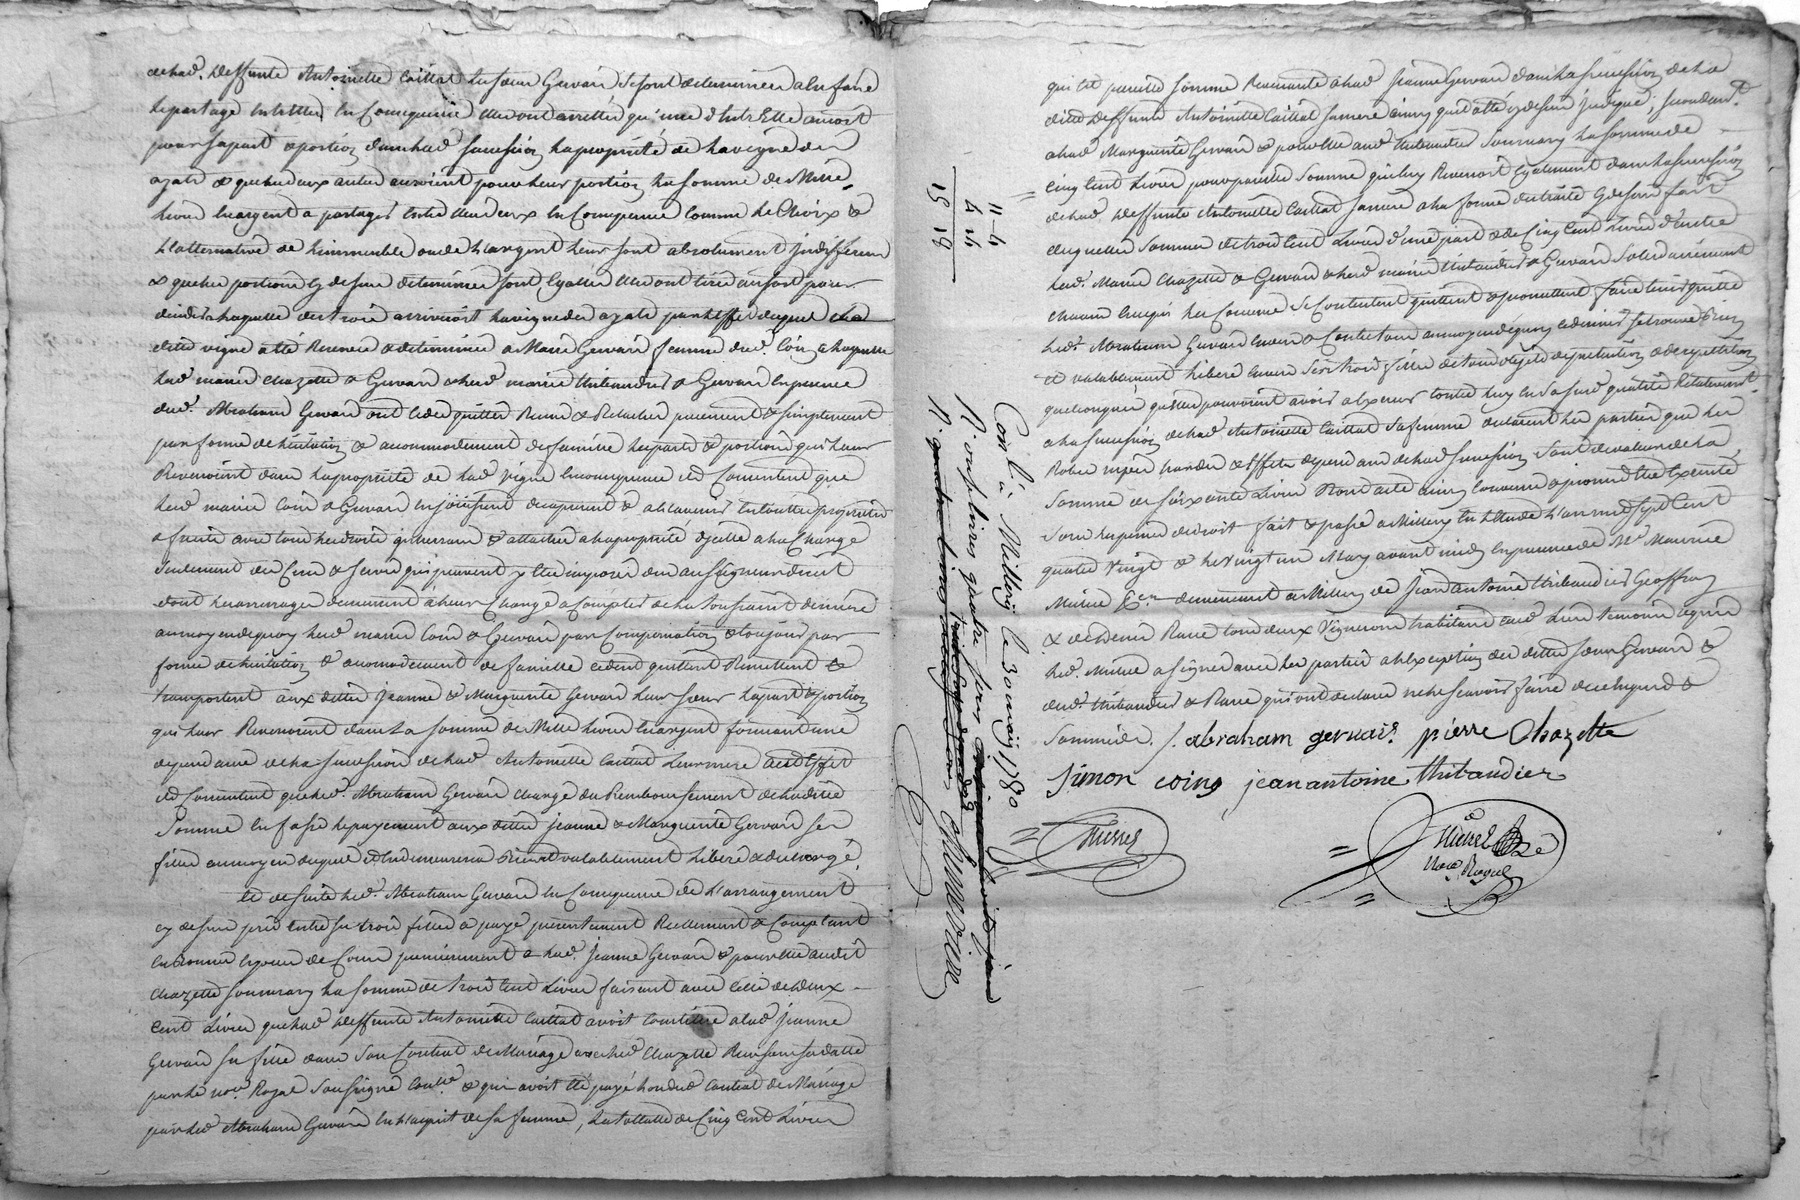 de lad. deffunte Antoinette Caillat les sœurs Gervais se sont determinées a en faire
le partage entr'elles en consequence elles ont arrêtés qu'une d'entr'elle auroit
pour sa part & portion dans lad. succession la propriété de la vigne des
ayats & que les deux autres auroient pour leurs portion la somme de Mille
livres en argent a partager entre elles deux en consequence comme le choix &
l'alternative de l'immeuble ou de l'argent leur sont absolument indifferens
& que les portions cy dessus determinées sont egalles elles ont tiré au sort pour
decider a laquelle des trois arriveroit la vigne des ayats par l'effet duquel
ditte vigne a été devenue & determinée a Marie Gervais femme dud. Coin a laquelle
lesd. mariés Chazette & Gervais & lesd. mariés Thibaudier & Gervais en presence
dud. Abraham Gervais ont cedé quitté remis & relaché purement & simplement
par forme de licitation & accommodement de famille les parts & portions qui leurs
revenoient dans la propriété de lad. vigne en consequence ils consentent que
lesd. mariés Coin & Gervais en jouissent des apresent & a l'avenir en toutte propriété
& fruits avec tous les droits qui seront & attachés a la propriété d'icelle a la charge
seulement des cens & servis qui peuvent y être imposés dus au seigneur direct
dont les arrerages demeurent a leur charge a compter de la Toussaint derniere
au moyen de quoy lesd. mariés Coin & Gervais par compensation & toujours par
forme de licitation & accomodement de famille cedent quittent remettent &
transportent aux dittes Jeanne & Marguerite Gervais leurs sœurs la part & portion
qui leur revenoient dans la somme de Mille livres en argent formant une
dependance de la succession de lad. Antoinette Caillat leur mere aud. effet
ils consentent que led. Abraham Gervais chargé du remboursement de laditte
somme en fasse le payement aux dittes Jeanne & Marguerite Gervais ses
filles au moyen duquel il en demeurera bien & valablement libéré & dechargé.
Et de suite led. Abraham Gervais en consequence de l'arrangement
cy dessus pris entre ses trois filles a payé presentement reellement & comptant
en bonnes especes de cours premierement a lad. Jeanne Gervais & pour elle audit
Chazette son mary la somme de trois cent livres faisant avec celle de deux
cent livres que lad. deffunte Antoinette Caillat avoit constituée a lad. Jeanne
Gervais sa fille dans son contrat de Mariage avec led. Chazette reçu sous sa datte
par le no.re Royal soussigné & qui avoit été payé lors dud. contrat de Mariage
par led. Abraham Gervais en l'acquit de sa femme, la totallité de cinq cent livres
qui est pareille somme revenante a lad. Jeanne Gervais dans la succession de la
ditte deffunte Antoinette Caillat sa mere ainsy qu'il a été cy dessus indiqué; secondem.t
a lad. Marguerite Gervais & pour elle aud. Thibaudier son mary la somme de
cinq cent livres pour pareille somme qui luy revenoit egalement dans la succession
de lad. deffunte Antoinette Caillat sa mere a la forme du traité cy dessus fait
desquelles sommes de trois cent livres d'une part & de cinq cent livres d'autre
lesd. Mariés Chazette & Gervais & lesd. mariés Thibaudier & Gervais solidairement
chacun en ce qui les concerne se contentent quittent & promettent faire tenir quitte
led. Abraham Gervais leur pere & content au moyen de quoy ce dernier se trouve bien
et valablement libéré envers ses trois filles de tous objets de petition & de repetition
quelconques qu'elles pouvoient avoir a exercer contre luy en sa susd. qualité relativement
a la succession de lad. Antoinette Caillat sa femme declarent les parties que les
robes nipes hardes & effets dependans de lad. succession sont de valeur de la
somme de soixante livres Dont acte ainsy convenu & promis être executé
sous les peines de droit fait & passé a Millery en l'Etude l'an mil sept cent
quatre vingt & le vingt un May avant midy en presence de M.e Maurice
Mulsac demeurant a Millery de Jean Antoine Thibaudier Geoffray
& de Denis Rane tous deux Vignerons habitans aud. lieu temoins requis
led. Mulsac a signé avec les parties a l'exception des dittes sœurs Gervais &
desd. Thibaudier & Rane qui ont declaré ne le sçavoir faire de ce enquis &
sommés. /. abraham gervais. pierre Chazette
Simon coing jean antoine thibaudier
Michel
No.re Royal
11 - 4
4 14
15 18
Con.lé à Millery le 30 may 1780
R. onze livres quatre sols